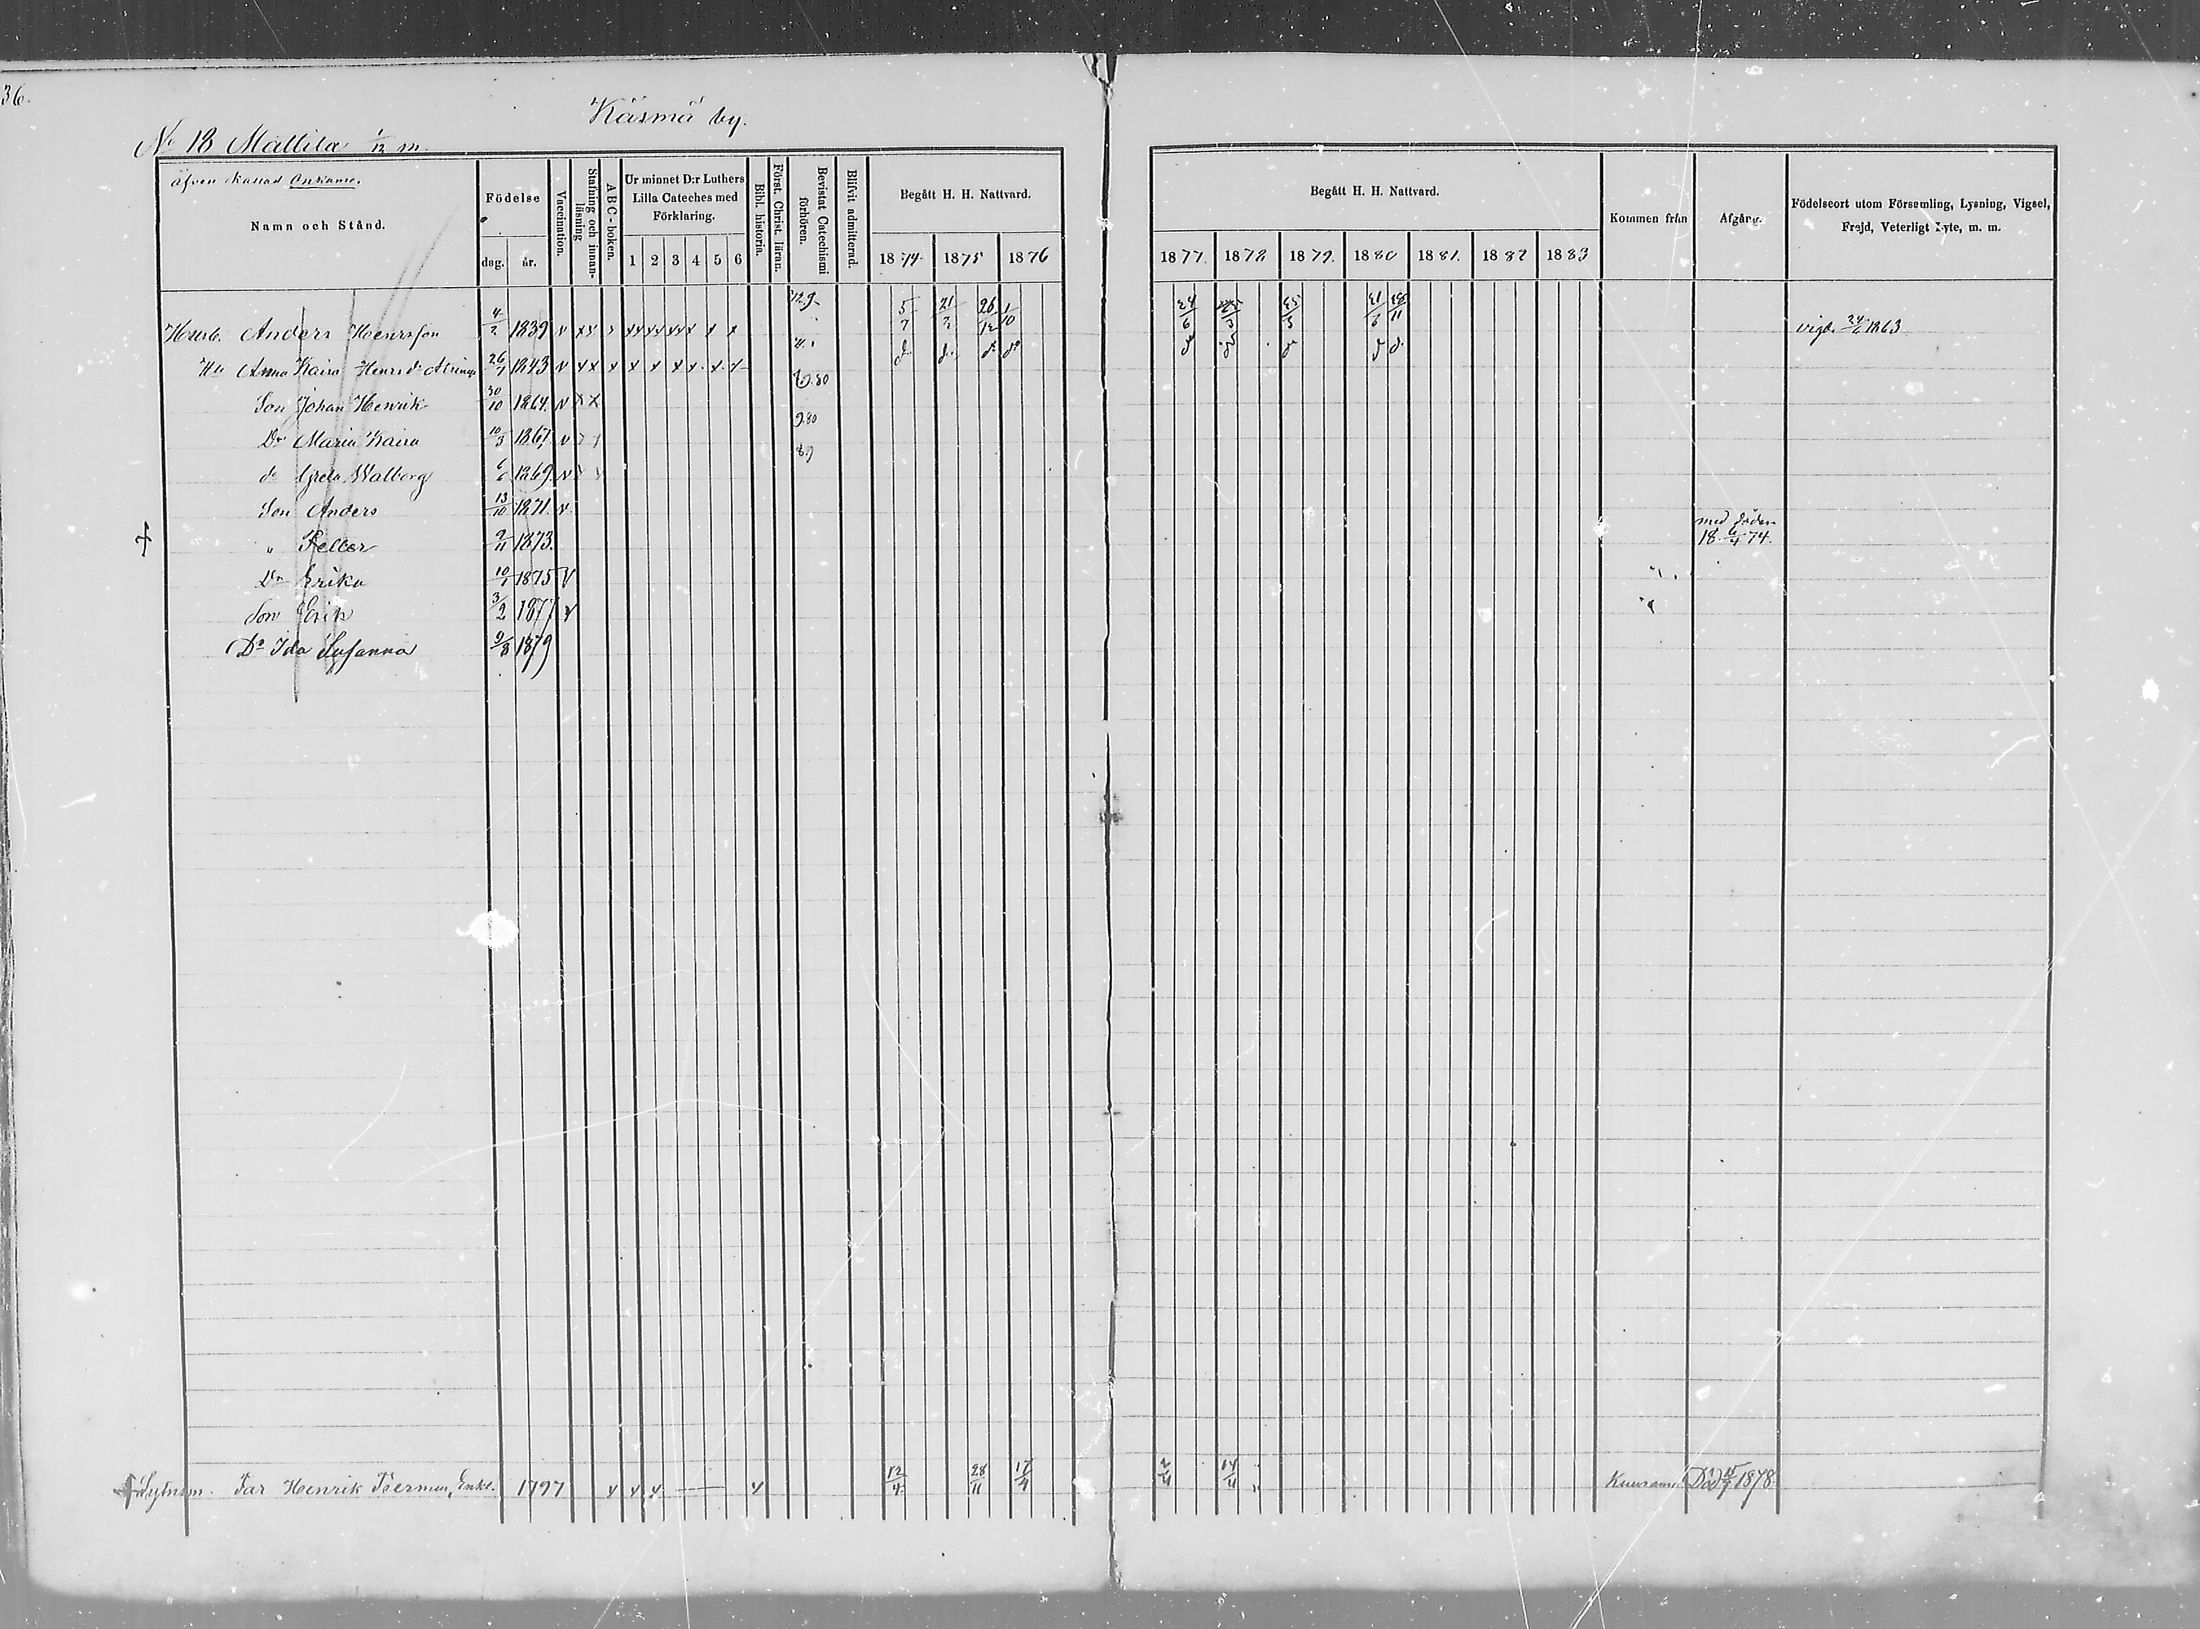 36.
Käsmä by.
No 18 Mattila 1/12 m.
äfven kallad
Namn och Stånd.
Födelse
dag. år.
Vaccination.
Stafning och innanläsning
ABC-boken.
Ur minnet D:r Luthers Lilla Cateches med Förklaring.
1 2 3 4 5 6
Bibl. historia.
Först. Christ. läran.
Bevistat Catechismi förhören.
Blifvit admitterad.
Begått H. H. Nattvard.
1874 1875 1876
Begått H. H. Nattvard.
1877. 1878 1879. 1880 1881. 1882 1883
Kommen från
Afgång.
Födelseort utom Församling, Lysning, Vigsel, Frejd, Veterligt Lyte, m. m.
Husb. Anders Henrsson 4/2 1839 5/7 21/2 26/12 1/10 24/6 vigd. 24/6 1863
Hu Anna Kaisa Henrsdr 26/7 1843
Son Johan Henrik 30/10 1864. 9.80
Dr Maria Kaisa 10/3 1867. 9.80
do Greta Walborg 6/6 1869. 89
Son Anders 13/10 1871.
" Petter 2/11 1873. med döden 18 6/4 74.
Dr Erika 10/1 1875
Son Erik 3/2 1877
Dr Ida Susanna 9/8 1879
Sytnim. Far Henrik Enkl. 1797 12/4 28/11 17/4 2/4 14/4 Kuusamo Död 15/7 1878